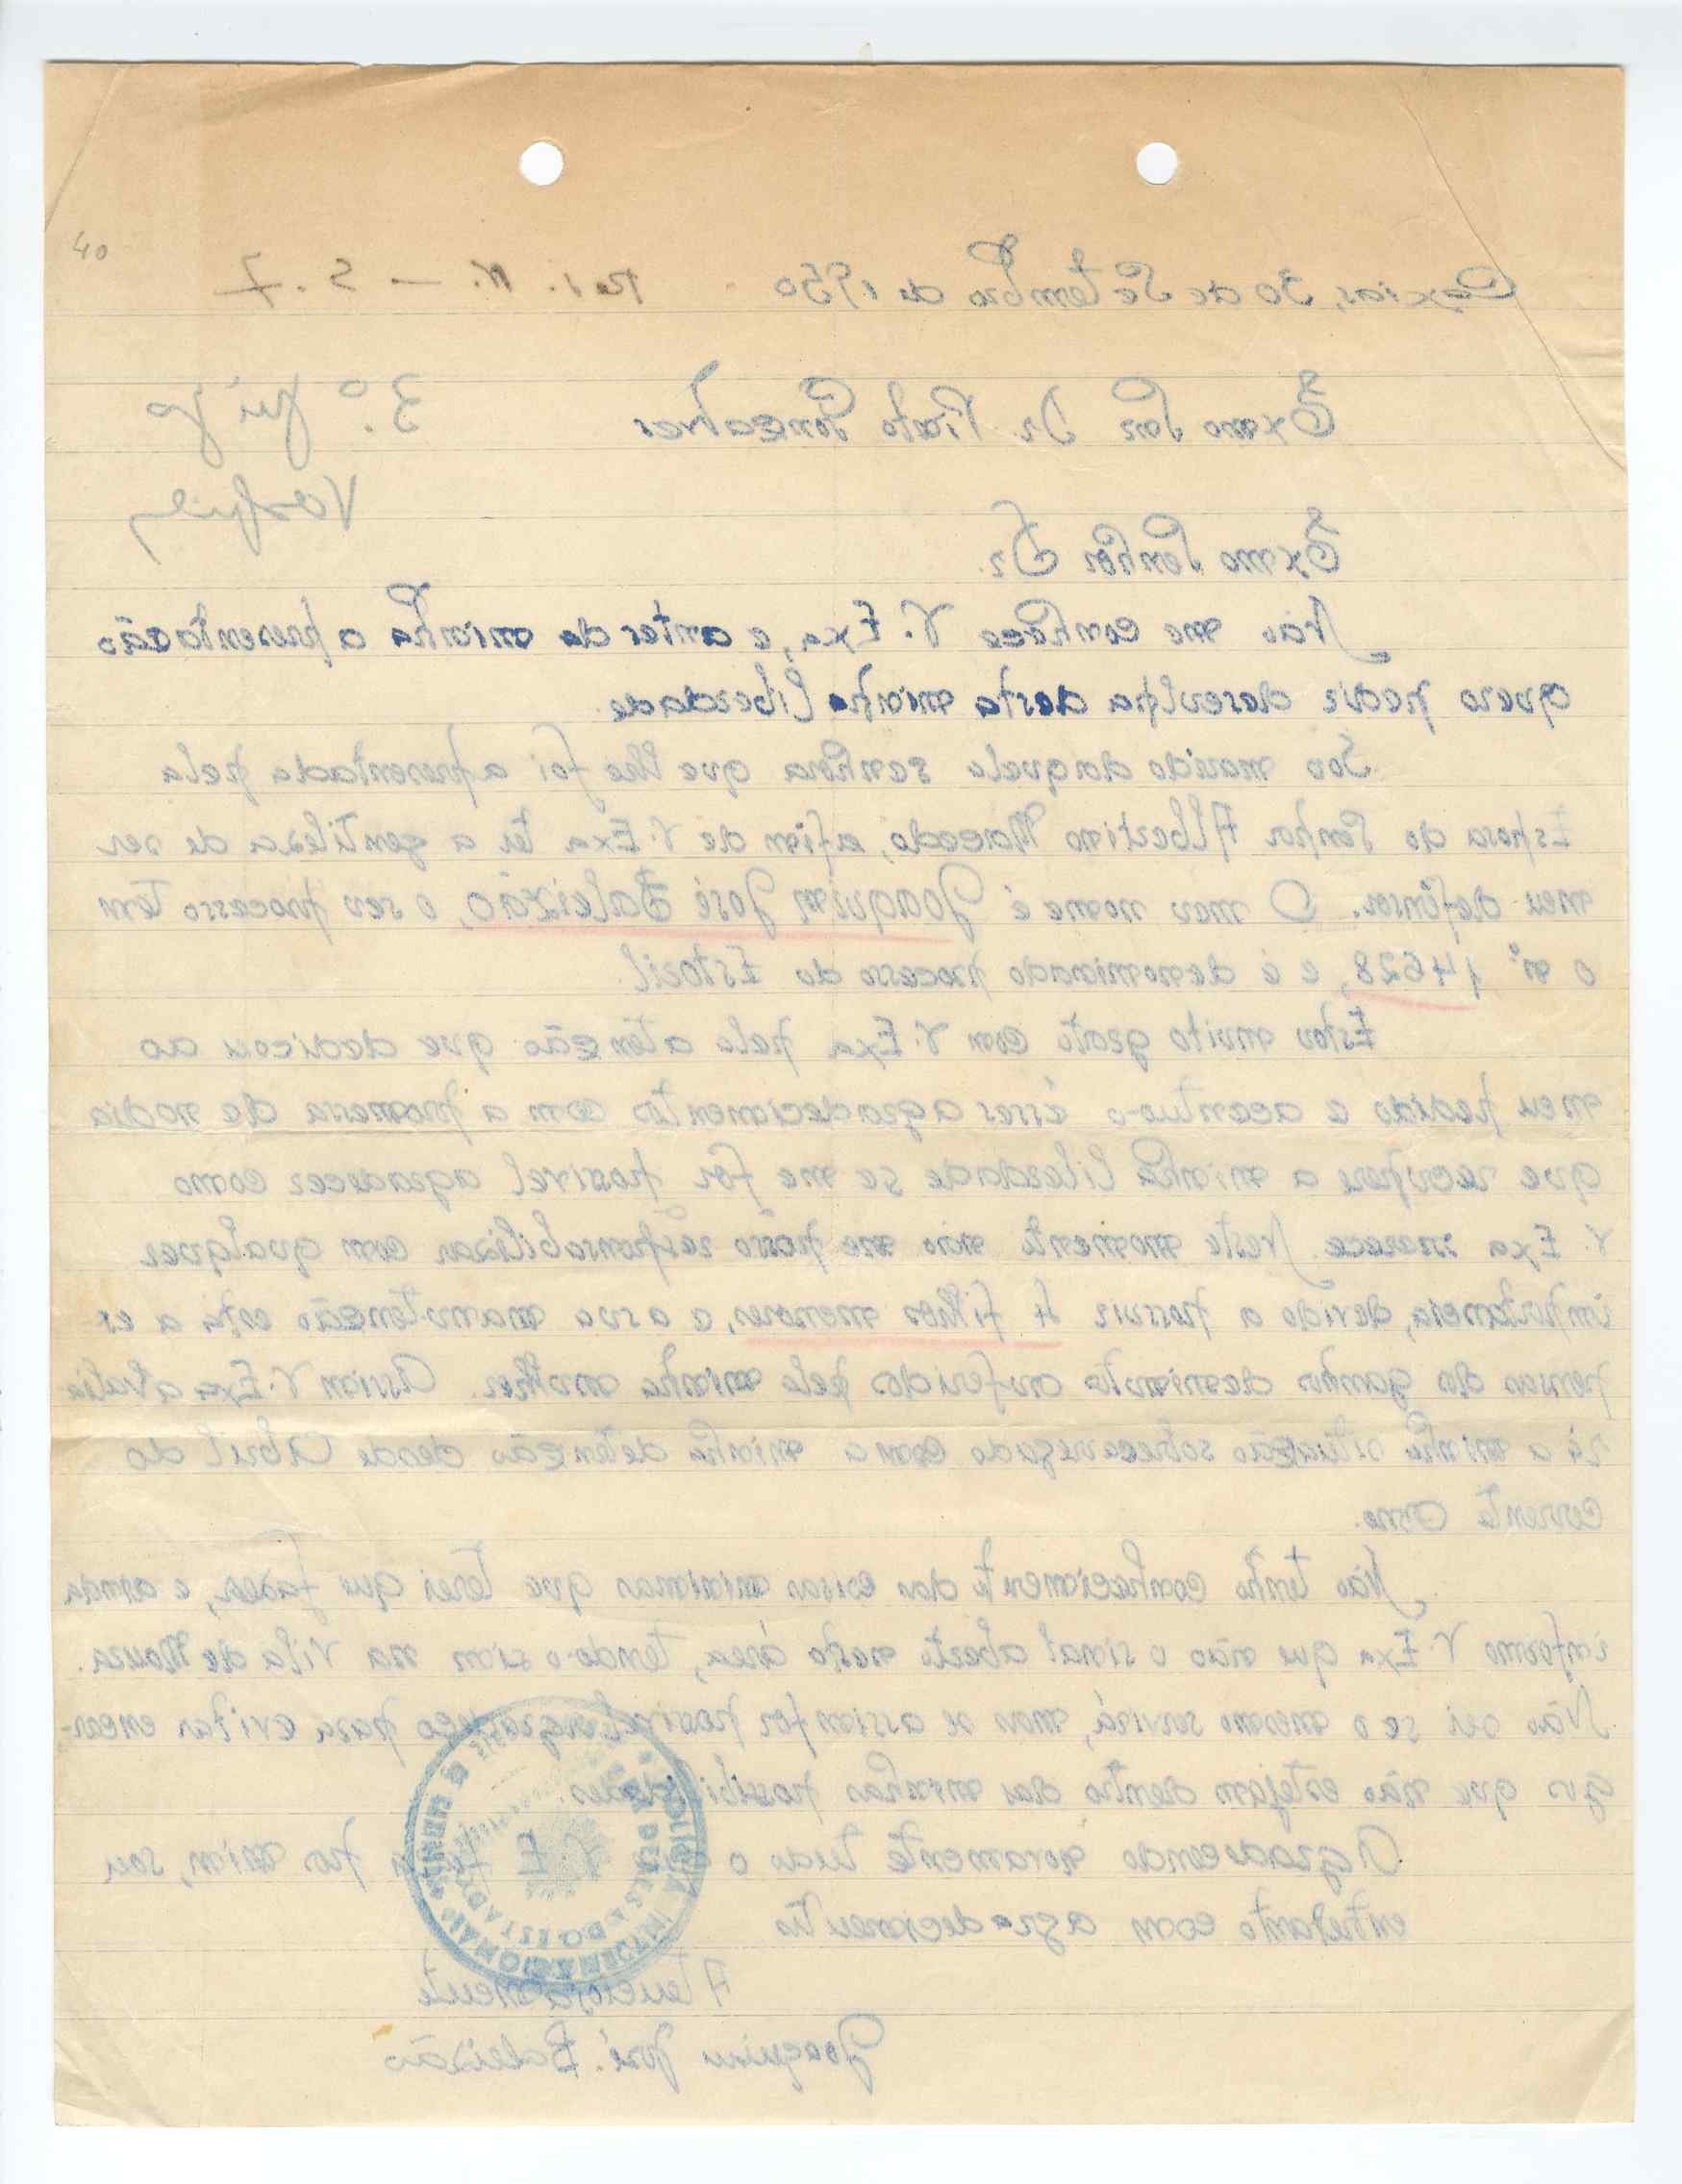 40
Caxias, 30 de Setembro de 1950 Red. N. — S. 7
Exmo Snr Dr.
3.º juízo
Exmo Senhor Dr.
Não me conhece V. Exa, e antes da minha apresentação
quero pedir desculpa desta minha liberdade.
Sou marido daquela senhora que lhe foi apresentada pela
Esposa do Senhor Albertino Macedo, afim de V. Exa ter a gentileza de ser
meu defensor. O meu nome é Joaquim José Baleizão, o seu processo tem
o nº 14628, e é denominado processo do Estoril.
Estou muito grato com V. Exa pela atenção que dedicou ao
meu pedido e acentuo-o êsses agradecimentos com a promessa de no dia
que recupere a minha liberdade se me fôr possivel agradecer como
V. Exa merece. Neste momento não me posso responsabilizar com qualquer
importancia, devido a possuir 4 filhos menores, e a sua manutenção está a ex
pensas do ganho deminuto auferido pela minha mulher. Assim V. Exa avalia
rá a minha situação sobrecarregada com a minha detenção desde Abril do
corrente Ano.
Não tenho conhecimento das coisas minimas que terei que fazer, e ainda
informo V. Exa que não o sinal aberto nesta área, tendo-o sim na Vila de Moura.
Não sei se o mesmo servirá, mas se assim for possivel agradeço para evitar encar-
gos que não estejam dentro das minhas possibilidades.
Agradecendo novamente tudo o que V. E. faça por mim, sou,
entretanto com agradecimento
Atenciosamente
Joaquim José Baleizão
POLICIA INTERNACIONAL E DE DEFESA DO ESTADO